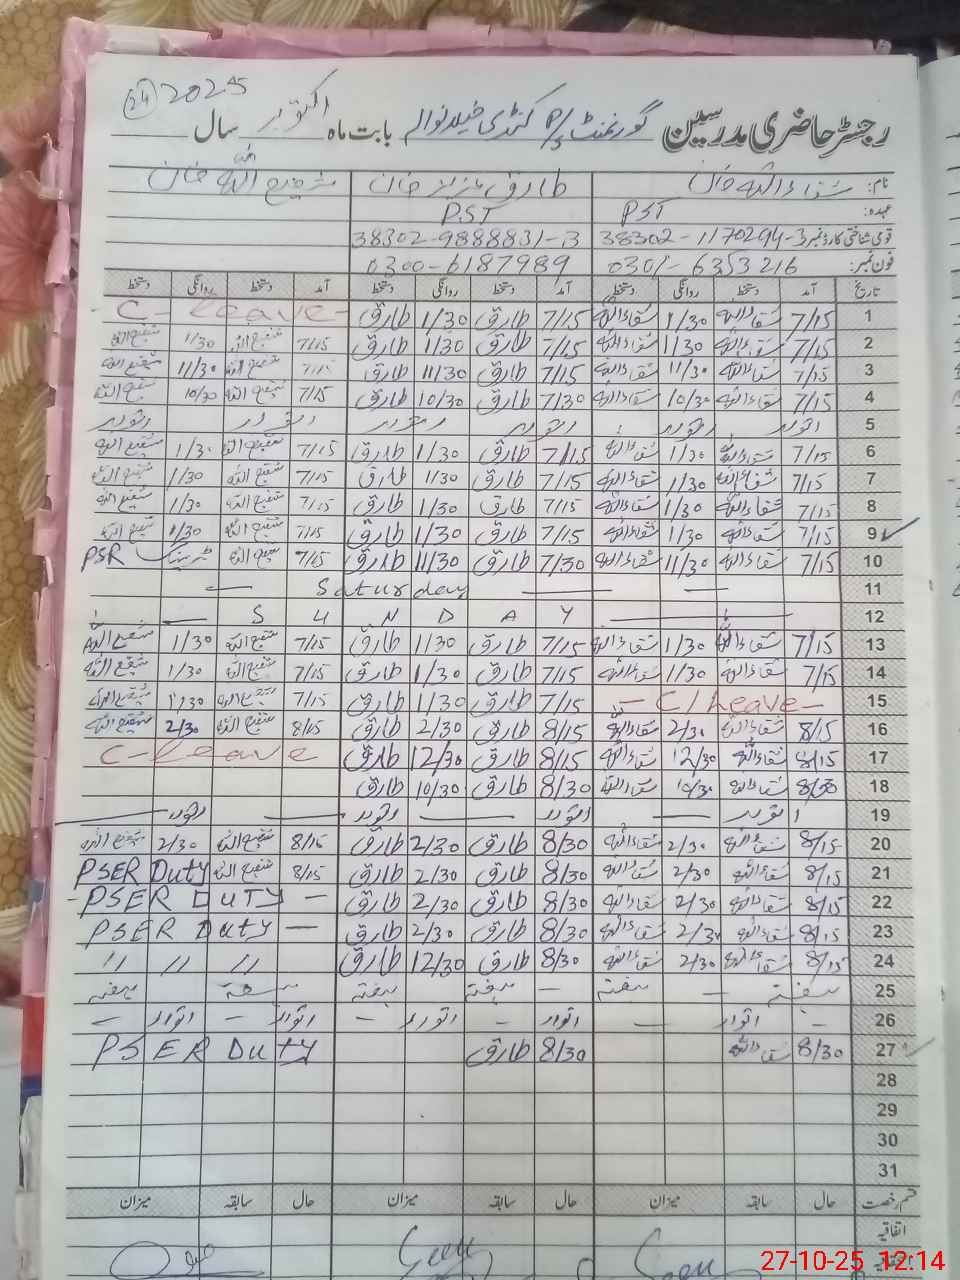 24 2025
رجسٹر حاضری مدرسین گورنمنٹ P/S کنڈی خیلانوالہ بابت ماہ اکتوبر سال
نام: شفاء اللہ خان طارق عزیز خان شفیع اللہ خان
عہدہ: PST PST
قومی شناختی کارڈ نمبر 38302-1170294-3 38302-9888831-3
فون نمبر: 0301-6353216 0300-6187989
تاریخ آمد دستخط روانگی دستخط آمد دستخط روانگی دستخط آمد دستخط روانگی دستخط
1 7/15 شفاءاللہ 1/30 شفاءاللہ 7/15 طارق 1/30 طارق C-leave
2 7/15 شفاءاللہ 1/30 شفاءاللہ 7/15 طارق 1/30 طارق 7/15 شفیع اللہ 1/30 شفیع اللہ
3 7/15 شفاءاللہ 11/30 شفاءاللہ 7/15 طارق 11/30 طارق 7/15 شفیع اللہ 11/30 شفیع اللہ
4 7/15 شفاءاللہ 10/30 شفاءاللہ 7/30 طارق 10/30 طارق 7/15 شفیع اللہ 10/30 شفیع اللہ
5 اتوار اتوار اتوار اتوار اتوار اتوار
6 7/15 شفاءاللہ 1/30 شفاءاللہ 7/15 طارق 1/30 طارق 7/15 شفیع اللہ 1/30 شفیع اللہ
7 7/15 شفاءاللہ 1/30 شفاءاللہ 7/15 طارق 1/30 طارق 7/15 شفیع اللہ 1/30 شفیع اللہ
8 7/15 شفاءاللہ 1/30 شفاءاللہ 7/15 طارق 1/30 طارق 7/15 شفیع اللہ 1/30 شفیع اللہ
9 7/15 شفاءاللہ 1/30 شفاءاللہ 7/15 طارق 1/30 طارق 7/15 شفیع اللہ 1/30 شفیع اللہ
10 7/15 شفاءاللہ 11/30 شفاءاللہ 7/30 طارق 11/30 طارق 7/15 شفیع اللہ ٹریننگ PSR
11 Saturday
12 SUNDAY
13 7/15 شفاءاللہ 1/30 شفاءاللہ 7/15 طارق 1/30 طارق 7/15 شفیع اللہ 1/30 شفیع اللہ
14 7/15 شفاءاللہ 1/30 شفاءاللہ 7/15 طارق 1/30 طارق 7/15 شفیع اللہ 1/30 شفیع اللہ
15 C/Leave 7/15 طارق 1/30 طارق 7/15 شفیع اللہ 1/30 شفیع اللہ
16 8/15 شفاءاللہ 2/30 شفاءاللہ 8/15 طارق 2/30 طارق 8/15 شفیع اللہ 2/30 شفیع اللہ
17 8/15 شفاءاللہ 12/30 شفاءاللہ 8/15 طارق 12/30 طارق C-leave
18 8/30 شفاءاللہ 10/30 شفاءاللہ 8/30 طارق 10/30 طارق
19 اتوار اتوار اتوار اتوار
20 8/15 شفاءاللہ 2/30 شفاءاللہ 8/30 طارق 2/30 طارق 8/15 شفیع اللہ 2/30 شفیع اللہ
21 8/15 شفاءاللہ 2/30 شفاءاللہ 8/30 طارق 2/30 طارق 8/15 شفیع اللہ PSER Duty
22 8/15 شفاءاللہ 2/30 شفاءاللہ 8/30 طارق 2/30 طارق PSER DUTY
23 8/15 شفاءاللہ 2/30 شفاءاللہ 8/30 طارق 2/30 طارق PSER Duty
24 8/15 شفاءاللہ 2/30 شفاءاللہ 8/30 طارق 12/30 طارق // // //
25 ہفتہ ہفتہ ہفتہ ہفتہ ہفتہ ہفتہ
26 اتوار اتوار اتوار اتوار اتوار
27 8/30 شفاءاللہ 8/30 طارق PSER Duty
28
29
30
31
قسم رخصت حال سابقہ میزان حال سابقہ میزان حال سابقہ میزان
اتفاقیہ
Seen Seen
27-10-25 12:14